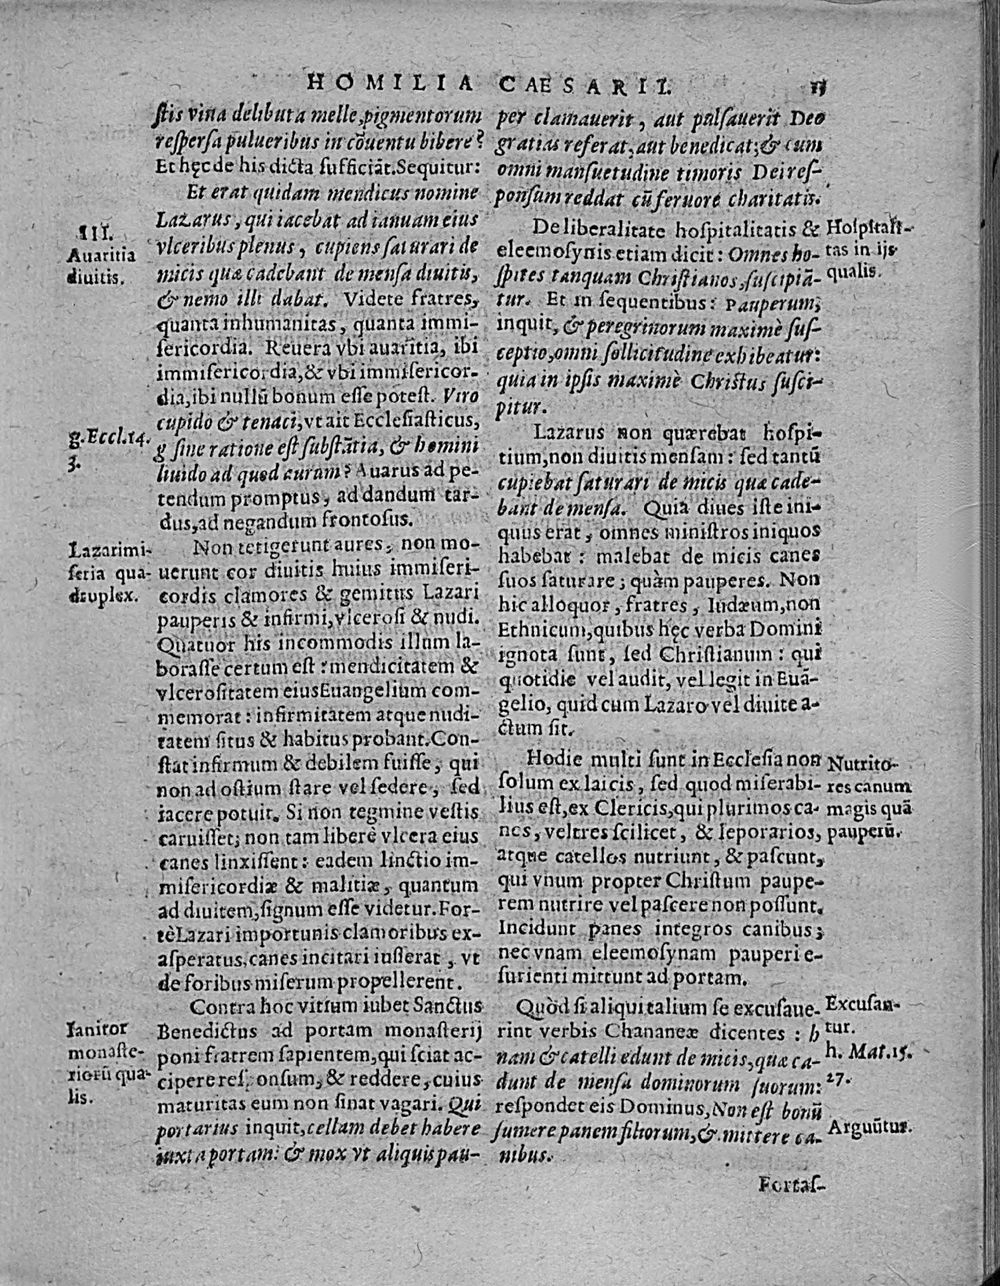 HOMILIA CAESARII.
stis vina delibuta melle, pigmentorum
respersa pulueribus in cōuentu bibere?
Et hęc de his dicta sufficiāt. Sequitur:
Et erat quidam mendicus nomine
Lazarus, qui iacebat ad ianuam eius
vlceribus plenus, cupiens saturari de
micis quæ cadebant de mensa diuitis,
& nemo illi dabat. Videte fratres,
quanta inhumanitas, quanta immi-
sericordia. Reuera vbi auaritia, ibi
immisericordia, & vbi immisericor-
dia, ibi nullū bonum esse potest. Viro
cupido & tenaci, vt ait Ecclesiasticus,
g sine ratione est substātia, & homini
liuido ad quod aurum? Auarus ad pe-
tendum promptus, ad dandum tar-
dus, ad negandum frontosus.
Non tetigerunt aures, non mo-
uerunt cor diuitis huius immiseri-
cordis clamores & gemitus Lazari
pauperis & infirmi, vlcerosi & nudi.
Quatuor his incommodis illum la-
borasse certum est: mendicitatem &
vlcerositatem eius Euangelium com-
memorat: infirmitatem atque nudi-
tatem situs & habitus probant. Con-
stat infirmum & debilem fuisse, qui
non ad ostium stare vel sedere, sed
iacere potuit. Si non tegmine vestis
caruisset; non tam liberè vlcera eius
canes linxissent: eadem linctio im-
misericordiæ & malitiæ, quantum
ad diuitem, signum esse videtur. For-
tè Lazari importunis clamoribus ex-
asperatus, canes incitari iusserat, vt
de foribus miserum propellerent.
Contra hoc vitium iubet Sanctus
Benedictus ad portam monasterij
poni fratrem sapientem, qui sciat ac-
cipere responsum, & reddere, cuius
maturitas eum non sinat vagari. Qui
portarius inquit, cellam debet habere
iuxta portam: & mox vt aliquis pau-
III.
Auaritia
diuitis.
g. Eccl. 14.
3.
Lazari mi-
seria qua-
druplex.
Ianitor
monaste-
riorū qua-
lis.
per clamauerit, aut pulsauerit Deo
gratias referat, aut benedicat; & cum
omni mansuetudine timoris Dei res-
ponsum reddat cū feruore charitatis.
De liberalitate hospitalitatis &
eleemosynis etiam dicit: Omnes ho-
spites tanquam Christianos, suscipiā-
tur. Et in sequentibus: Pauperum,
inquit, & peregrinorum maximè sus-
ceptio, omni sollicitudine exhibeatur:
quia in ipsis maximè Christus susci-
pitur.
Lazarus non quærebat hospi-
tium, non diuitis mensam: sed tantū
cupiebat saturari de micis quæ cade-
bant de mensa. Quia diues iste ini-
quus erat, omnes ministros iniquos
habebat: malebat de micis canes
suos saturare; quàm pauperes. Non
hic alloquor, fratres, Iudæum, non
Ethnicum, quibus hęc verba Domini
ignota sunt, sed Christianum: qui
quotidie vel audit, vel legit in Euā-
gelio, quid cum Lazaro vel diuite a-
ctum sit.
Hodie multi sunt in Ecclesia non
solum ex laicis, sed quod miserabi-
lius est, ex Clericis, qui plurimos ca-
nes, veltres scilicet, & leporarios,
atque catellos nutriunt, & pascunt,
qui vnum propter Christum paupe-
rem nutrire vel pascere non possunt.
Incidunt panes integros canibus;
nec vnam eleemosynam pauperi e-
surienti mittunt ad portam.
Quòd si aliqui talium se excusaue-
rint verbis Chananeæ dicentes: h
nam & catelli edunt de micis, quæ ca-
dunt de mensa dominorum suorum:
respondet eis Dominus, Non est bonū
sumere panem filiorum, & mittere ca-
nibus.
Hospitali-
tas in ijs
qualis.
Nutrito-
res canum
magis quā
pauperū.
Excusan-
tur.
h. Mat. 15.
27.
Arguūtur.
Fortas-